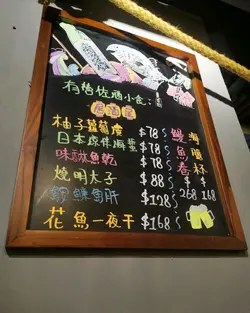 有得佐酒小食：
居酒屋
柚子蘿蔔皮 $78
日本原件海蜇 $78
味醂魚乾 $78
燒明太子 $88
鮟鱇魚肝 $128
花魚一夜干 $168
海膽杯 $168
鰻魚卷 $268